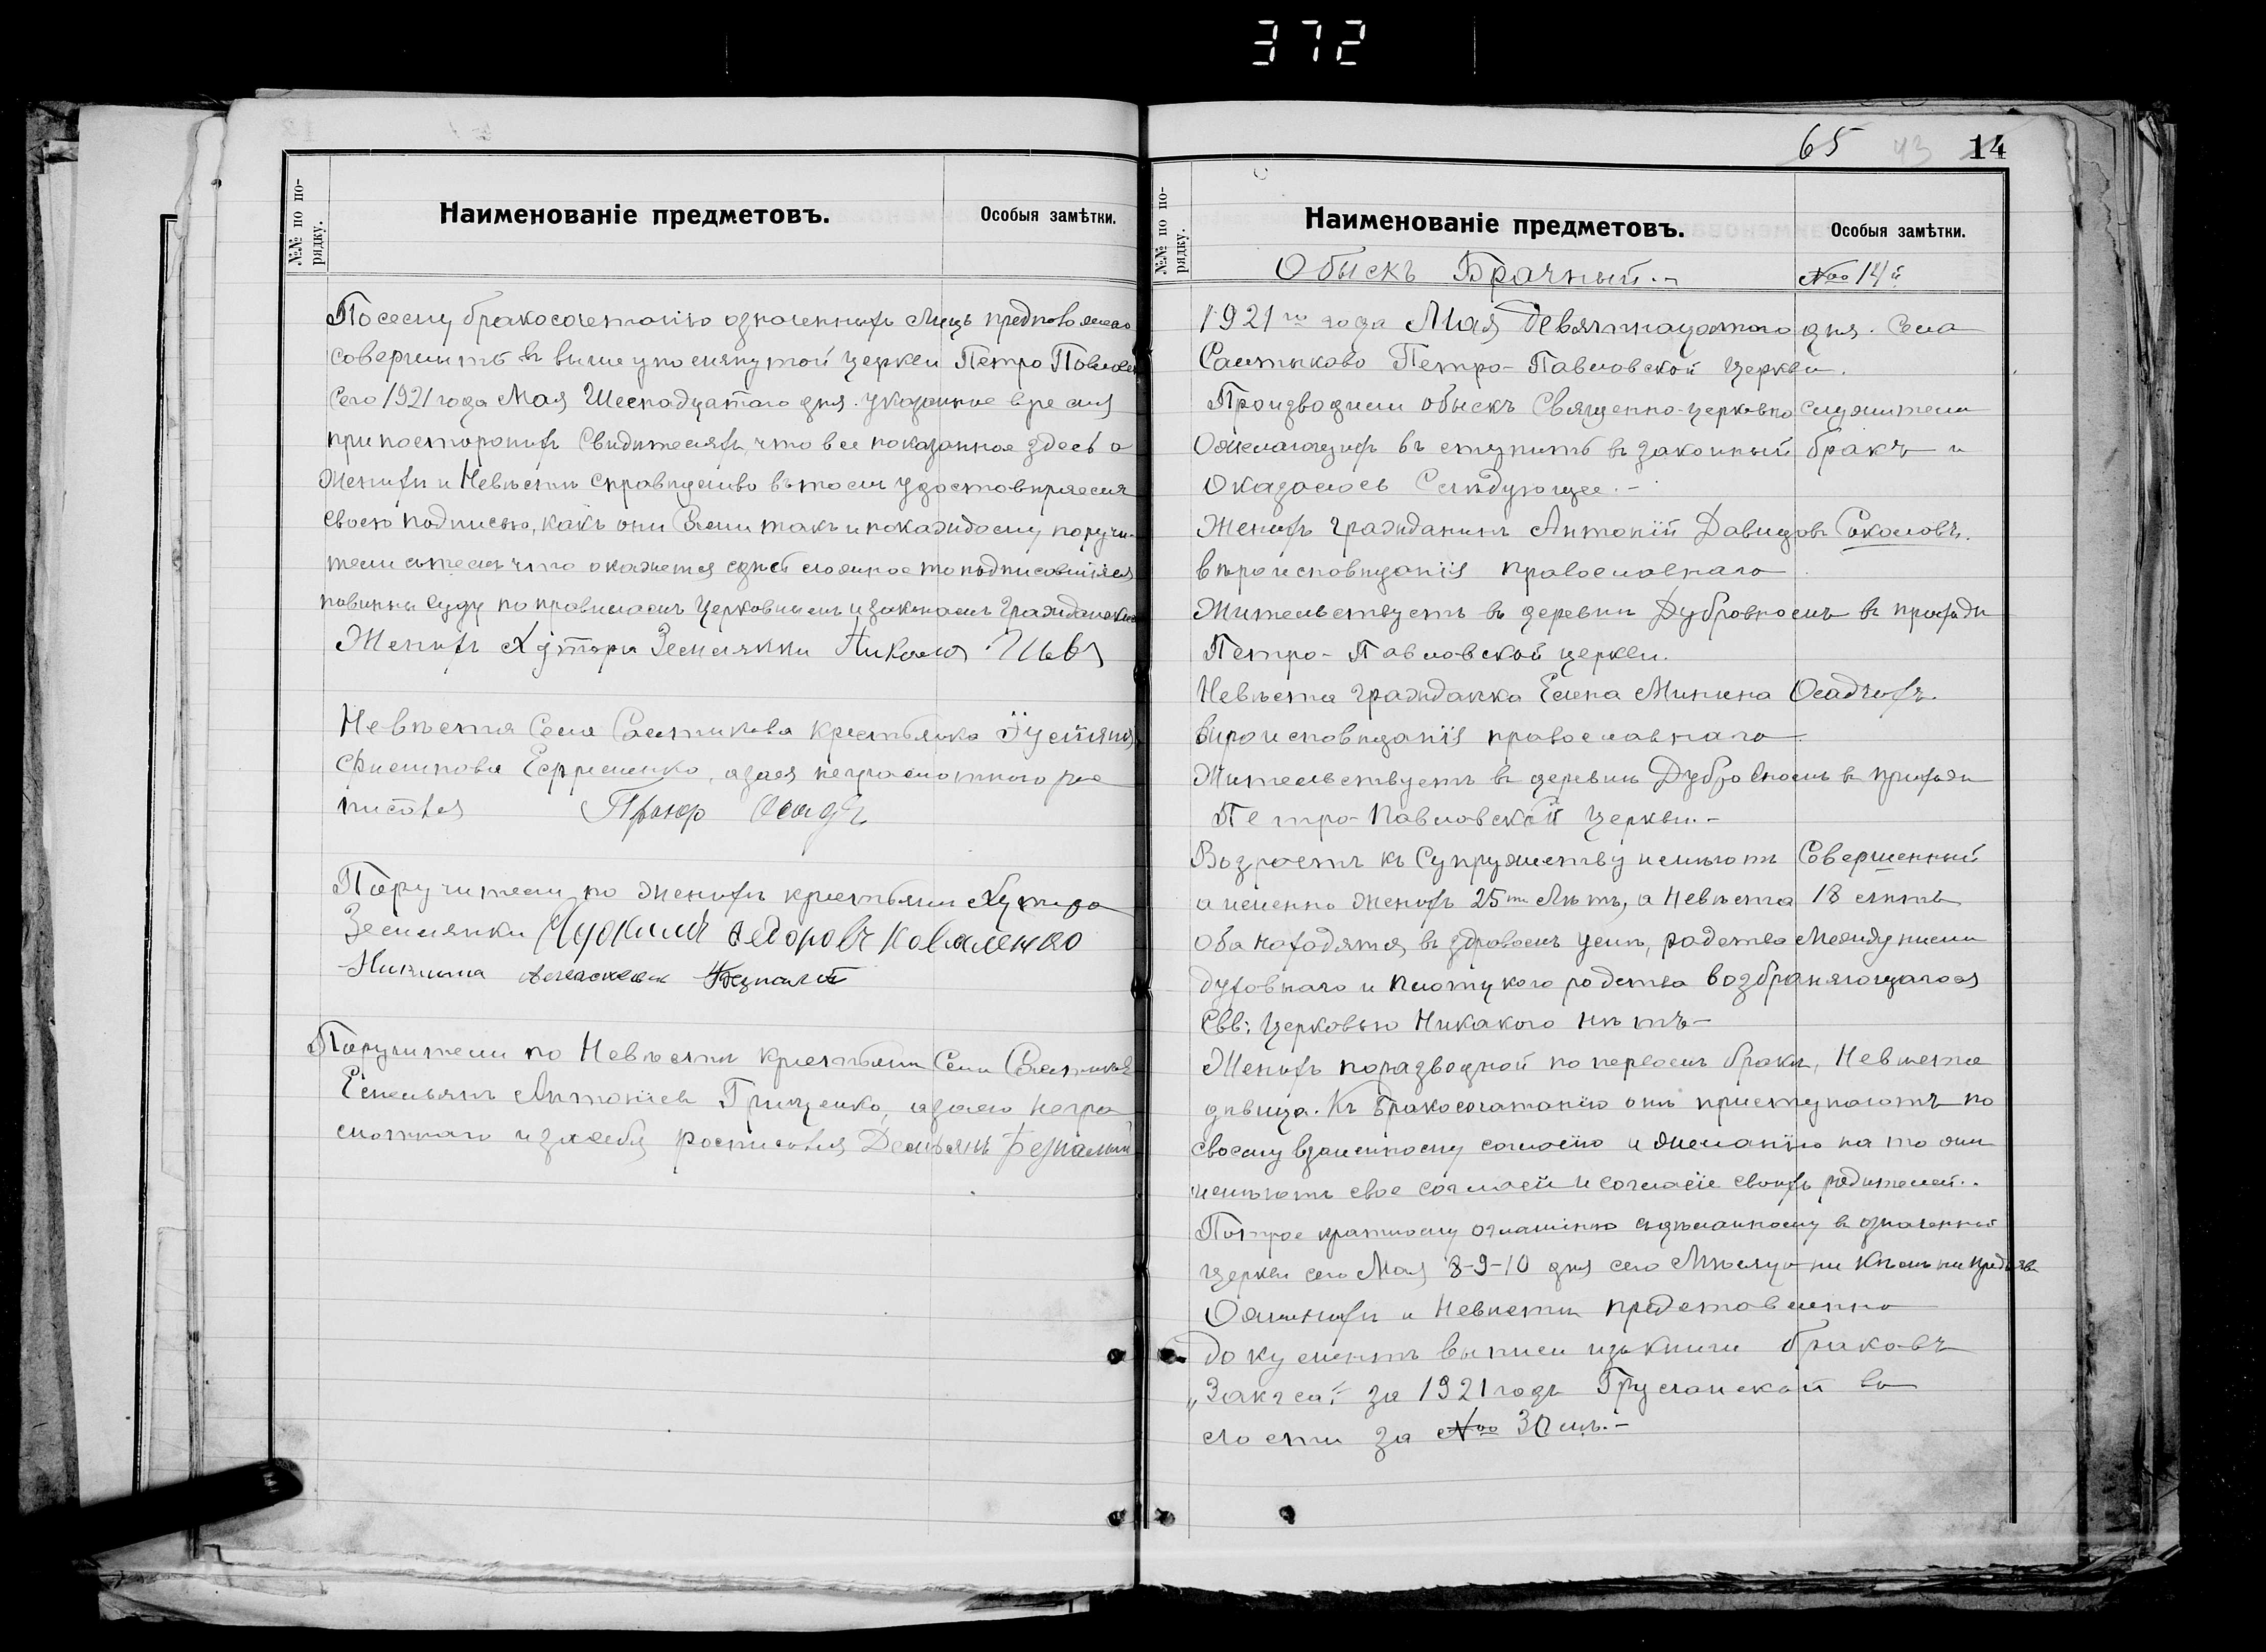 372
№№ по по-
рядку.
Наименованіе предметовъ.
Особыя замѣтки.
По сему бракосочетанію означенныхъ Лицъ предположено
совершить въ выше упомянутой церкви Петро Павлов
Сего 1921 года Мая Шеснадцатаго дня. указанное время
при постороннихъ Свидѣтеляхъ, что все показанное здесь о
Женихѣ и Невѣстѣ справедливо въ томъ удостовѣряемъ
своею подписью, какъ они Сами такъ и по каждому поручи-
тели съ тѣмъ что окажется ложное то подписавшіяся
повинны суду по правиламъ Церковнымъ и законамъ Гражданским
Женихъ Хутора Землянки Никола
Невѣста Села Салтикова крестьянка Іустинія
Филипова Ефрименко, а за ея неграмотного рос
писался Осадч
Поручители по женихѣ крестьяни Хутора
Землянки Федоровъ Коваленко
Никита Безпалій
Поручители по Невѣсти крестьяни Села Салтикова
Емельянъ Антоніевъ Грищенко, а за его негра
мотнаго и за себя росписался Демьянъ Безпалый
65 43 14
№№ по по-
рядку.
Наименованіе предметовъ.
Особыя замѣтки.
Обыскъ Брачный.-
№ 14й
1921го года Мая Девятнацатаго дня. Села
Салтыково Петро-Павловской церкви.
Производили обыскъ Священно-церковно служители
О желающихъ въ ступить въ законный бракъ и
Оказалось Слѣдующее.-
Женихъ гражданинъ Антоній Давидовъ Соколовъ.
вѣроисповѣданія православнаго
Жительствуетъ въ деревни Дубровномъ въ приходѣ
Петро-Павловской церкви.
Невѣста гражданка Елена Минина Осадчихъ.
вѣроисповѣданія православнаго
Жительствуетъ въ деревнѣ Дубровномъ въ приходѣ
Петро-Павловской Церкви.-
Возрастъ къ Супружеству имѣютъ Совершенный
а именно женихъ 25ти Лѣтъ, а Невѣста 18 лѣтъ
оба находятся въ здравомъ умѣ, родства Между ними
духовнаго и плотцкого родства возбраняющагося
Свв: Церковью Никакого нѣтъ-
Женихъ поразводной по первомъ браки, Невѣста
дѣвица. Къ Бракосочатанію онѣ приступаютъ по
своему взаимному согласію и желанію на то они
имѣютъ свое согласіи и согласіе своихъ родителей..
По трое кратному оглашенію сдѣланному въ означенной
церкви сего Мая 8-9-10 дня сего Мѣсяца ни кѣмъ не предъяв
О женихѣ и Невѣсти предетавленно
документъ выписи изъ книги браковъ
„Закгса" за 1921 годъ Грузчанской во
лости за № 30мъ.-